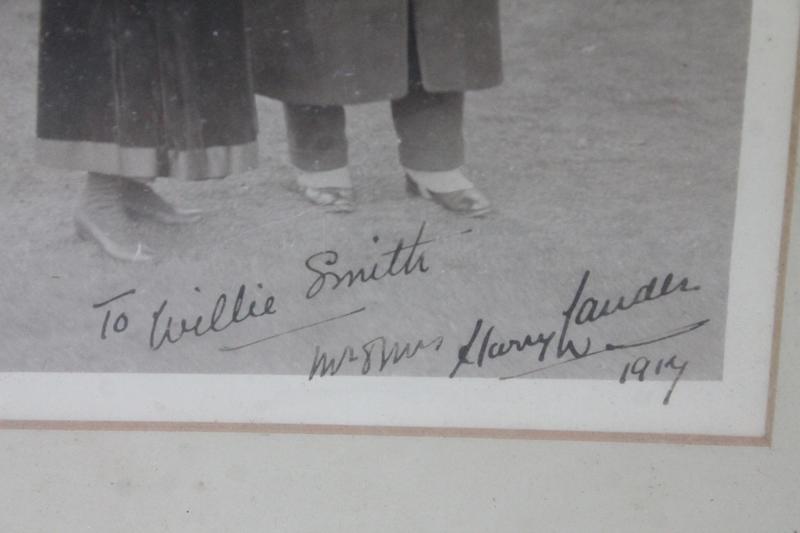 To Willie Smith
Mr & Mrs Harry Lauder
1917